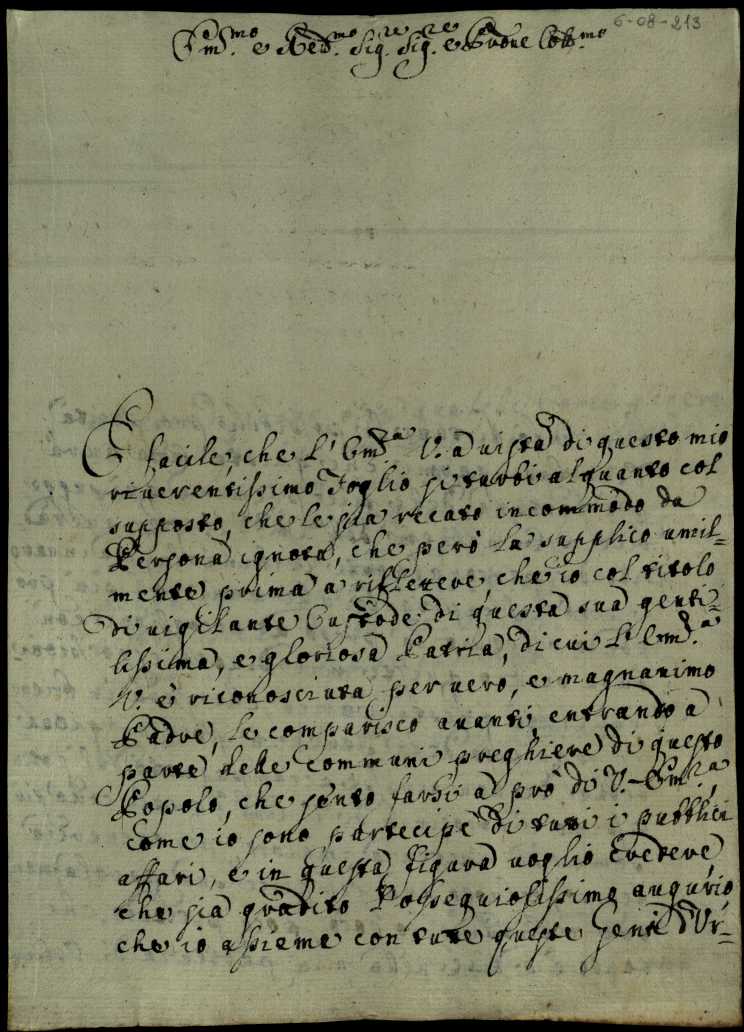 6-08-213
Em.mo e Red.mo Sig.re Sig.re e Prone Coll.mo
È facile, che l'Em.za V. a vista di questo mio
riverentissimo Foglio si turbi alquanto col
supposto, che le sia recato incommodo da
Persona ignota, che però la supplico umil=
mente prima a riflettere, che io col titolo
di vigilante Custode di questa sua genti=
lissima, e gloriosa Patria, di cui l'Em.za
V. è riconosciuta per vero, e magnanimo
Padre, le comparisco avanti entrando a
parte delle communi preghiere di questo
Popolo, che sento farsi a prò di V. Em.za,
come io sono partecipe di tutti i pubblici
affari, e in questa figura voglio credere,
che sia gradito l'ossequiosissimo augurio,
che io assieme con tutte queste Genti d'Ur=